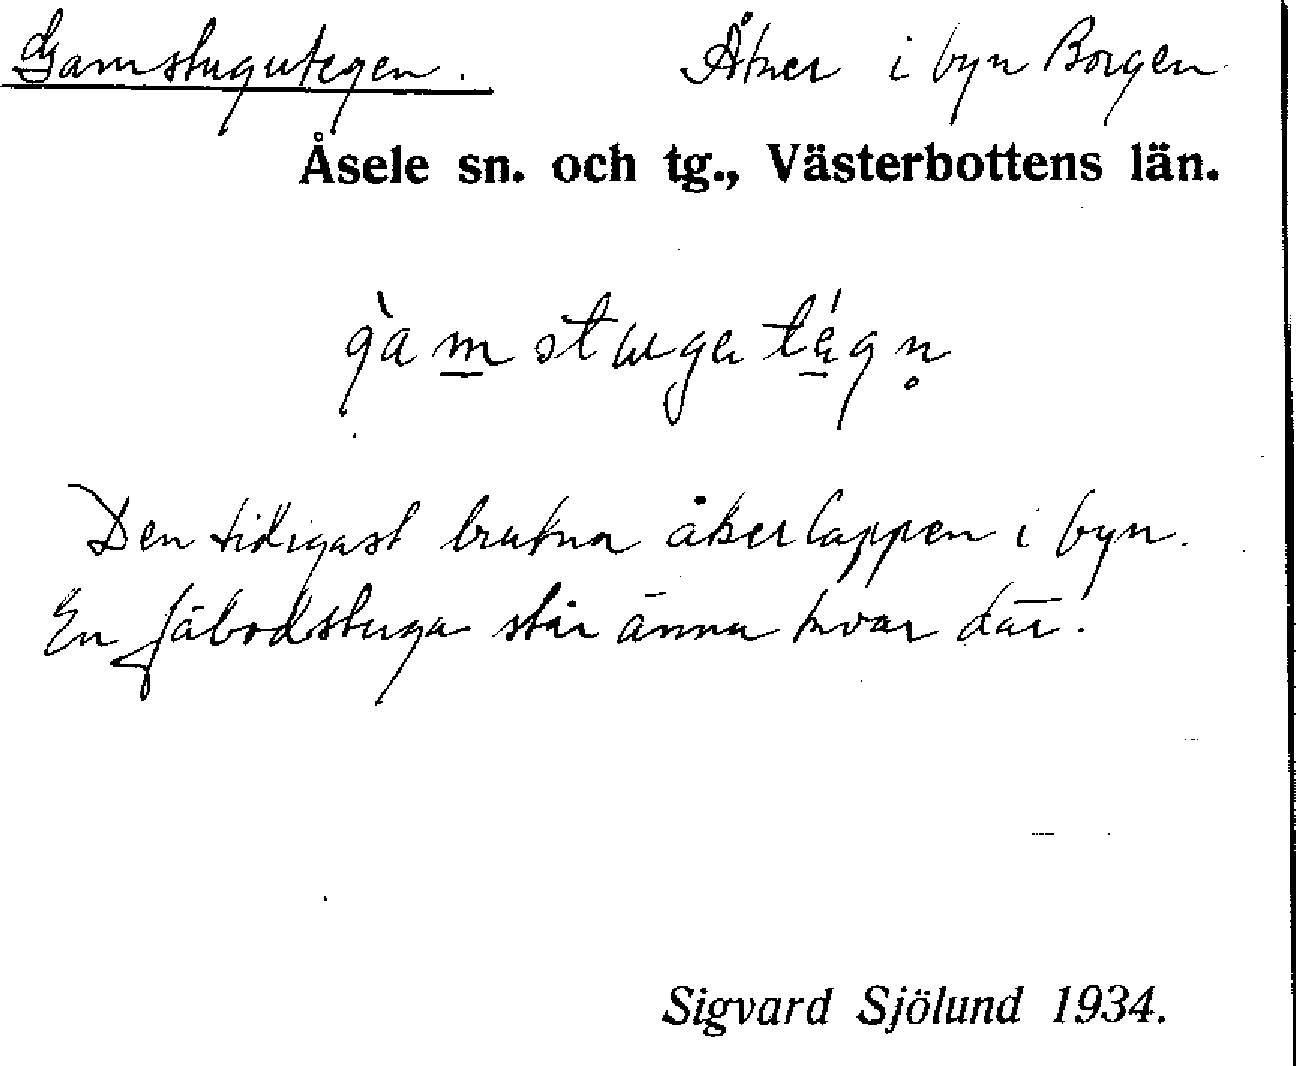 Gamstugutegen. Åker i byn Borgen
Åsele sn. och tg., Västerbottens län.
Den tidigast brutna åkerlappen i byn.
En fäbodstuga står ännu kvar där.
Sigvard Sjölund 1934.